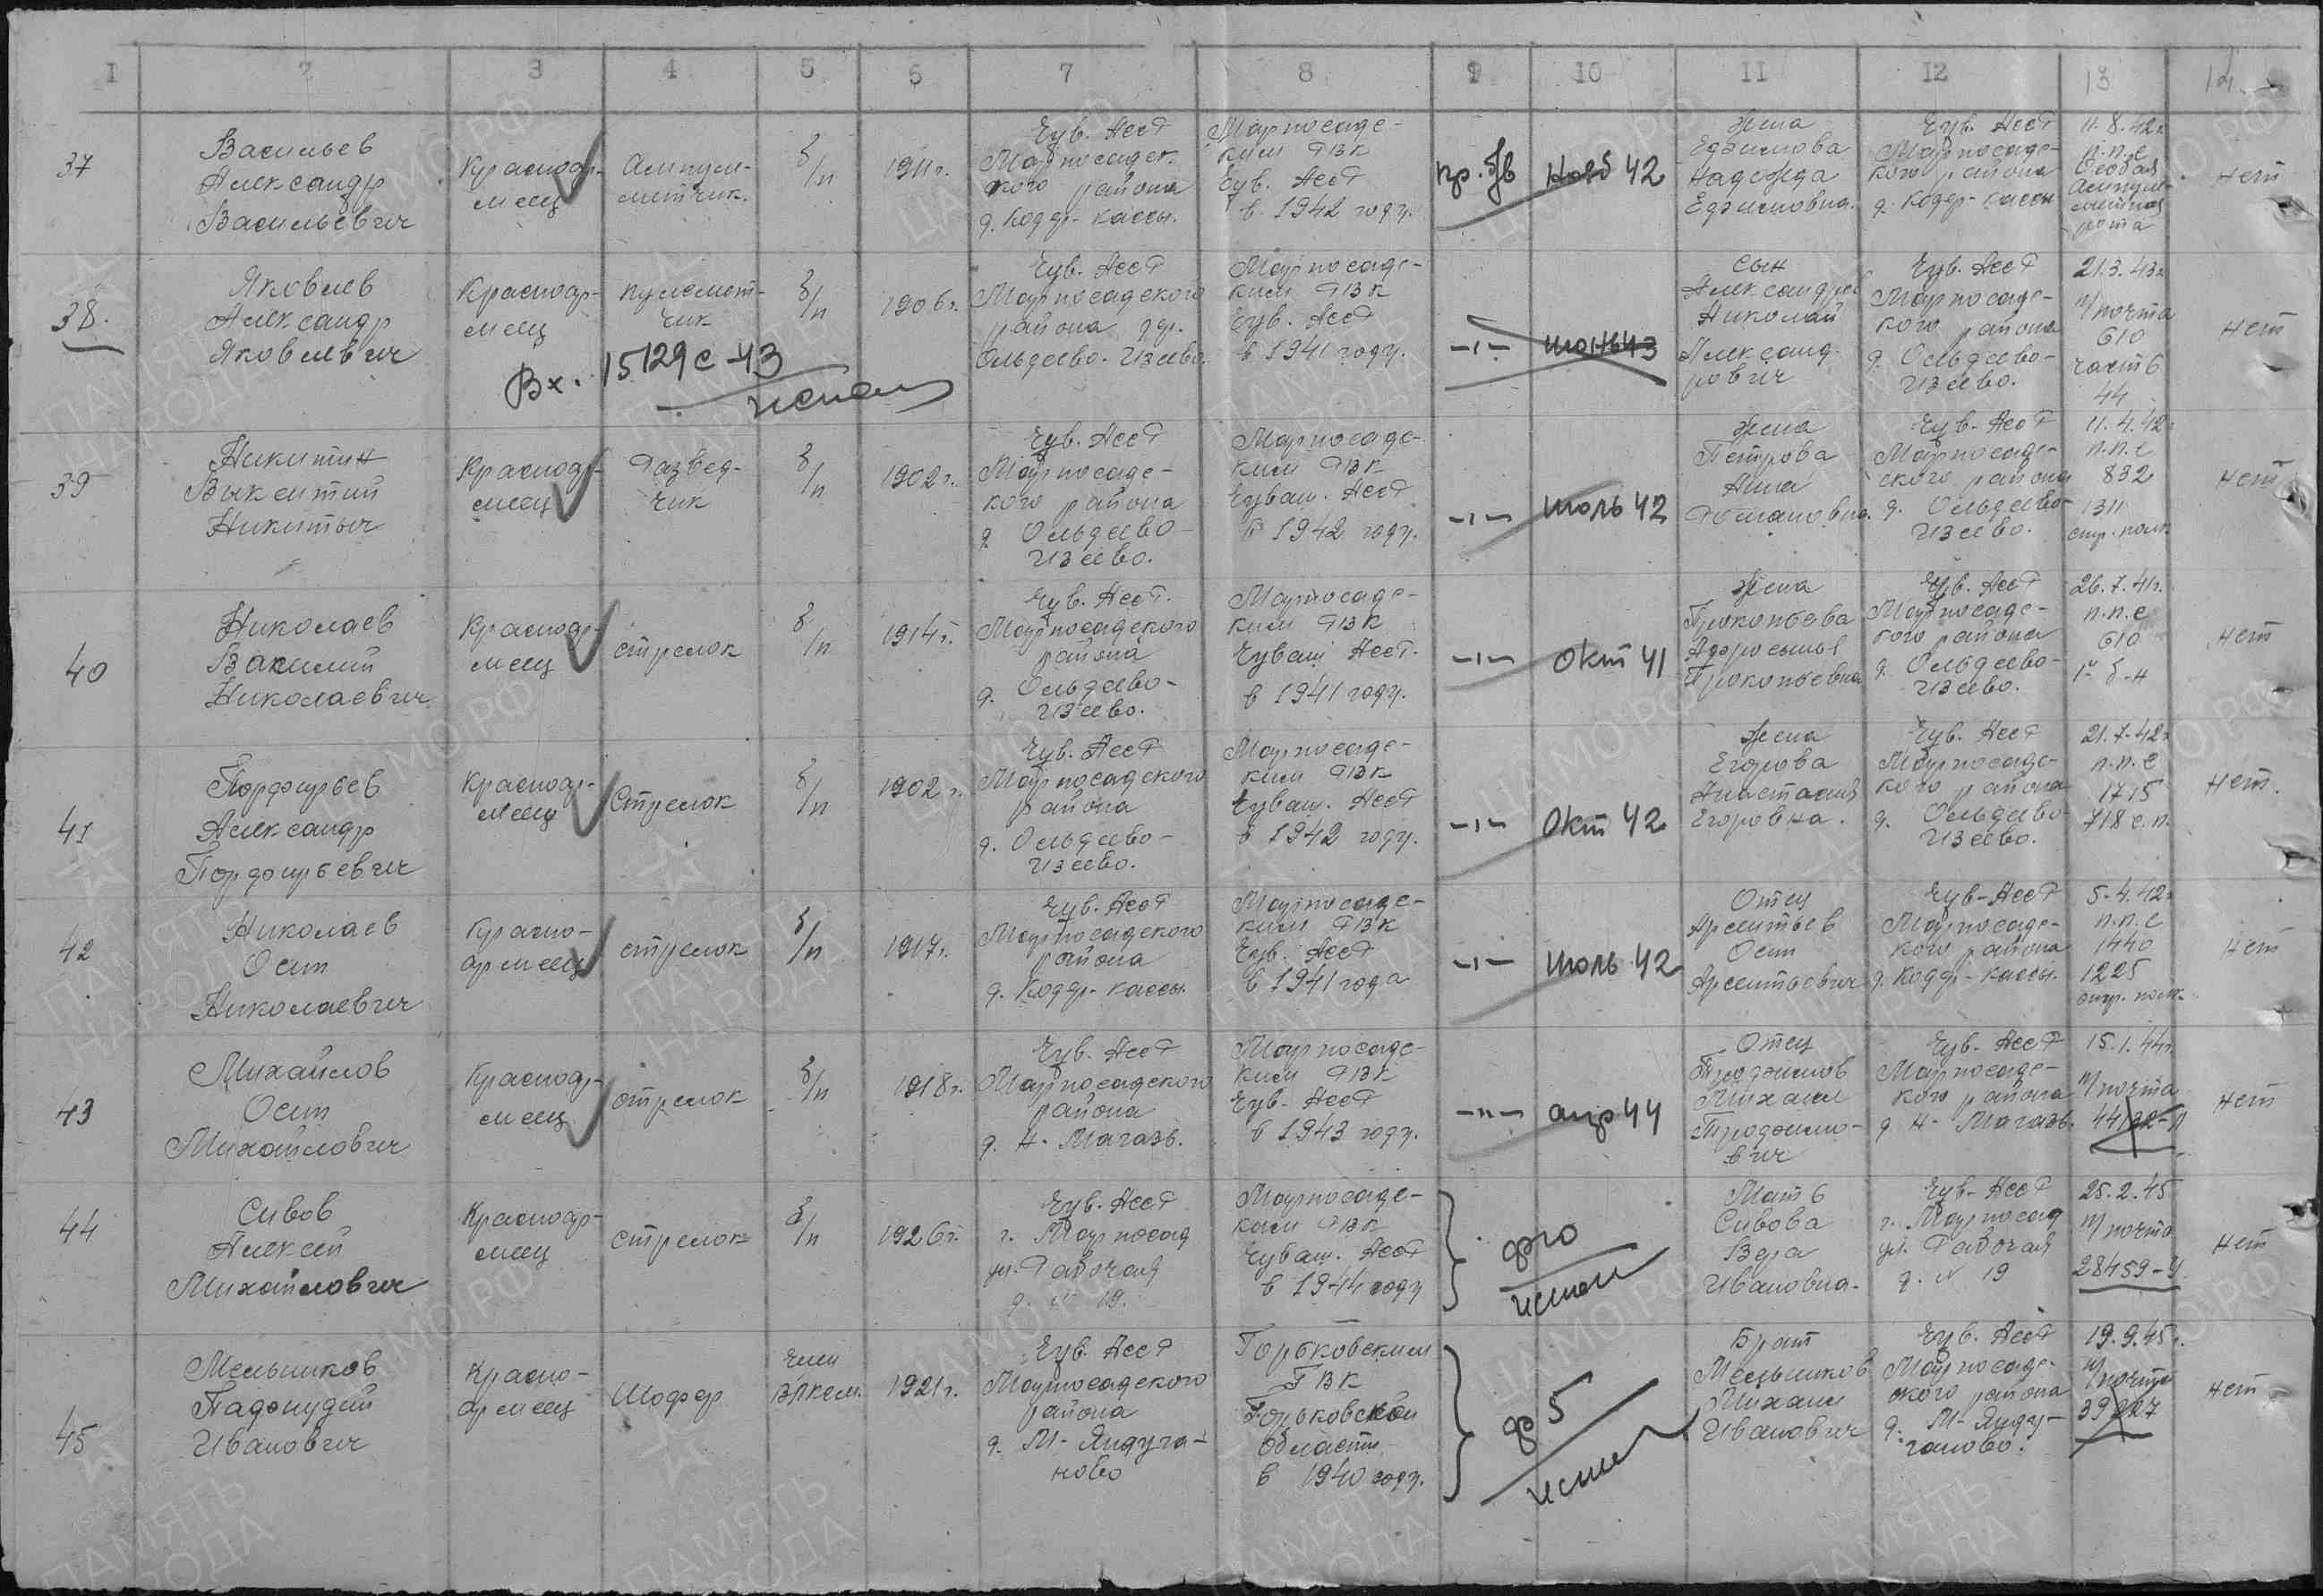 1 2 3 4 5 6 7 8 9 10 11 12 13 14
37
Васильев
Александр
Васильевич
Красноар-
меец
Ампуло-
метчик.
б/п
1911г.
Чув. АССР
Марпосадс-
кого района
д. Кодер-касы.
Марпосадс-
ким РВК
Чув. АССР
в 1942 году.
пр. б/в
нояб 42
Жена
Ефимова
Надежда
Ефимовна.
Чув. АССР
Марпосадс-
кого района
д. Кодер-касы
11.8.42г.
п.п.с
Особая
ампуло-
метная
рота
нет
38.
Яковлев
Александр
Яковлевич
Красноар-
меец
пулемет-
чик
б/п
1906г.
Чув. АССР
Марпосадского
района дер.
Ольдеево-Изеево.
Марпосадс-
ким РВК
Чув. АССР
в 1941 году.
-"-
июнь 43
Сын
Александров
Николай
Александ-
рович
Чув. АССР
Марпосадс-
кого района
д. Ольдеево-
Изеево.
21.3.43г.
п/почта
610
часть
44
нет
Вх. 15129с-43
39
Никитин
Викентий
Никитич
Красноар-
меец
Развед-
чик
б/п
1902г.
Чув. АССР
Марпосадс-
кого района
д. Ольдеево-
Изеево.
Марпосадс-
ким РВК
Чуваш. АССР
в 1942 году.
-"-
июль 42
Жена
Петрова
Анна
Романовна.
Чув. АССР
Марпосадс-
ского района
д. Ольдеево-
Изеево.
11.4.42г
п.п.с
832
1311
стр. полк
нет
40
Николаев
Василий
Николаевич
Красноар-
меец
стрелок
б/п
1914г.
Чув. АССР.
Марпосадского
района
д. Ольдеево-
Изеево.
Марпосадс-
ким РВК
Чуваш АССР.
в 1941 году.
-"-
Окт 41
Жена
Прокопьева
Афросинья
Прокопьевна
Чув. АССР
Марпосадс-
кого района
д. Ольдеево-
Изеево.
26.7.41г.
п.п.с
610
нет
41
Порфирьев
Александр
Порфирьевич
Красноар-
меец
Стрелок
б/п
1902г.
Чув. АССР
Марпосадского
района
д. Ольдеево-
Изеево.
Марпосадс-
ким РВК
Чуваш. АССР
в 1942 году.
-"-
Окт 42
Жена
Егорова
Анастасия
Егоровна.
Чув. АССР
Марпосадс-
кого района
д. Ольдеево
Изеево.
21.7.42г
п.п.с
1715
718 с.п.
нет.
42
Николаев
Осип
Николаевич
Красно-
армеец
стрелок
б/п
1917г.
Чув. АССР
Марпосадского
района
д. Кодер-касы.
Марпосадс-
ким РВК
Чув. АССР
в 1941 года
-"-
июль 42
Отец
Арсентьев
Осип
Арсентьевич
Чув-АССР
Марпосадс-
кого района
д. Кодер-касы.
5.4.42г
п.п.с
1440
1225
стр. полк.
нет
43
Михайлов
Осип
Михайлович
Красноар-
меец
стрелок
б/п
1918г.
Чув. АССР
Марпосадского
района
д. Н-Магазь.
Марпосадс-
ким РВК
Чув. АССР
в 1943 году.
-"-
апр 44
Отец
Трофимов
Михаил
Трофимо-
вич
Чув. АССР
Марпосадс-
кого района
д Н-Магазь.
15.1.44г.
п/почта
нет
44
Сивов
Алексей
Михайлович
Красноар-
меец
стрелок
б/п
1926г.
Чув. АССР
г. Марпосад
ул. Рабочая
д. № 19.
Марпосадс-
ким РВК
Чуваш. АССР
в 1944 году
Мать
Сивова
Вера
Ивановна.
Чув-АССР
г. Марпосад
ул. Рабочая
д. № 19
25.2.45
п/почта
28459-У
нет
45
Мельников
Иванович
Красно-
армеец
Шофер
член
ВЛКСМ.
1921г.
Чув. АССР
Марпосадского
района
д. М-Яндуга-
ново
Горьковским
ГВК
Горьковской
области
в 1940 году.
ф 5
Брат
Мельников
Михаил
Иванович
Чув. АССР
Марпосадс-
ского района
д. М-Янду-
ганово.
19.9.45г.
п/почта
нет
ПАМЯТЬ НАРОДА
ЦАМО.РФ